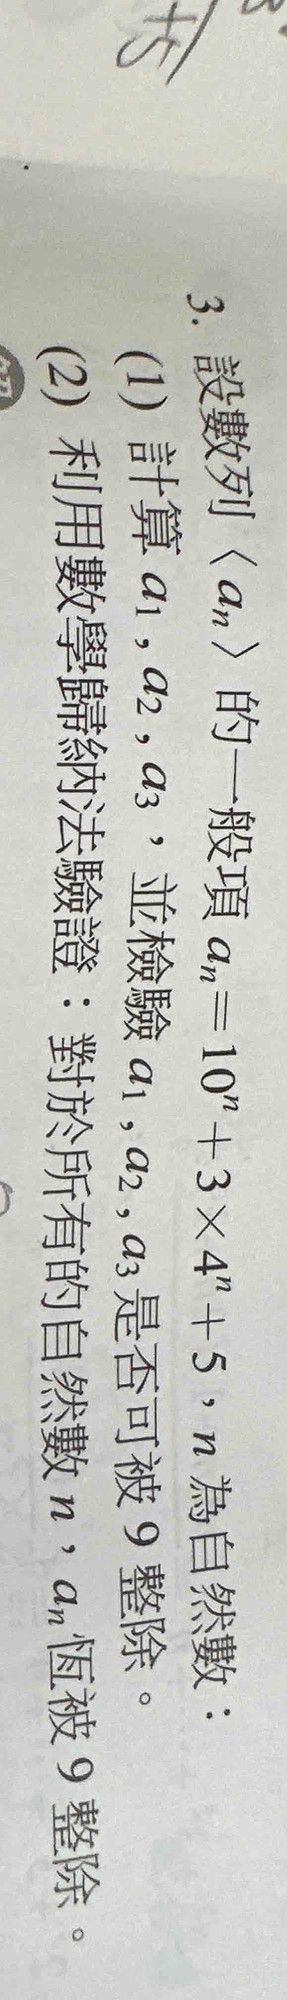 +5
3. 設數列〈aₙ〉的一般項 aₙ=10ⁿ+3×4ⁿ+5,n 為自然數:
(1) 計算 a₁,a₂,a₃,並檢驗 a₁,a₂,a₃是否可被 9 整除。
(2) 利用數學歸納法驗證:對於所有的自然數 n,aₙ恆被 9 整除。